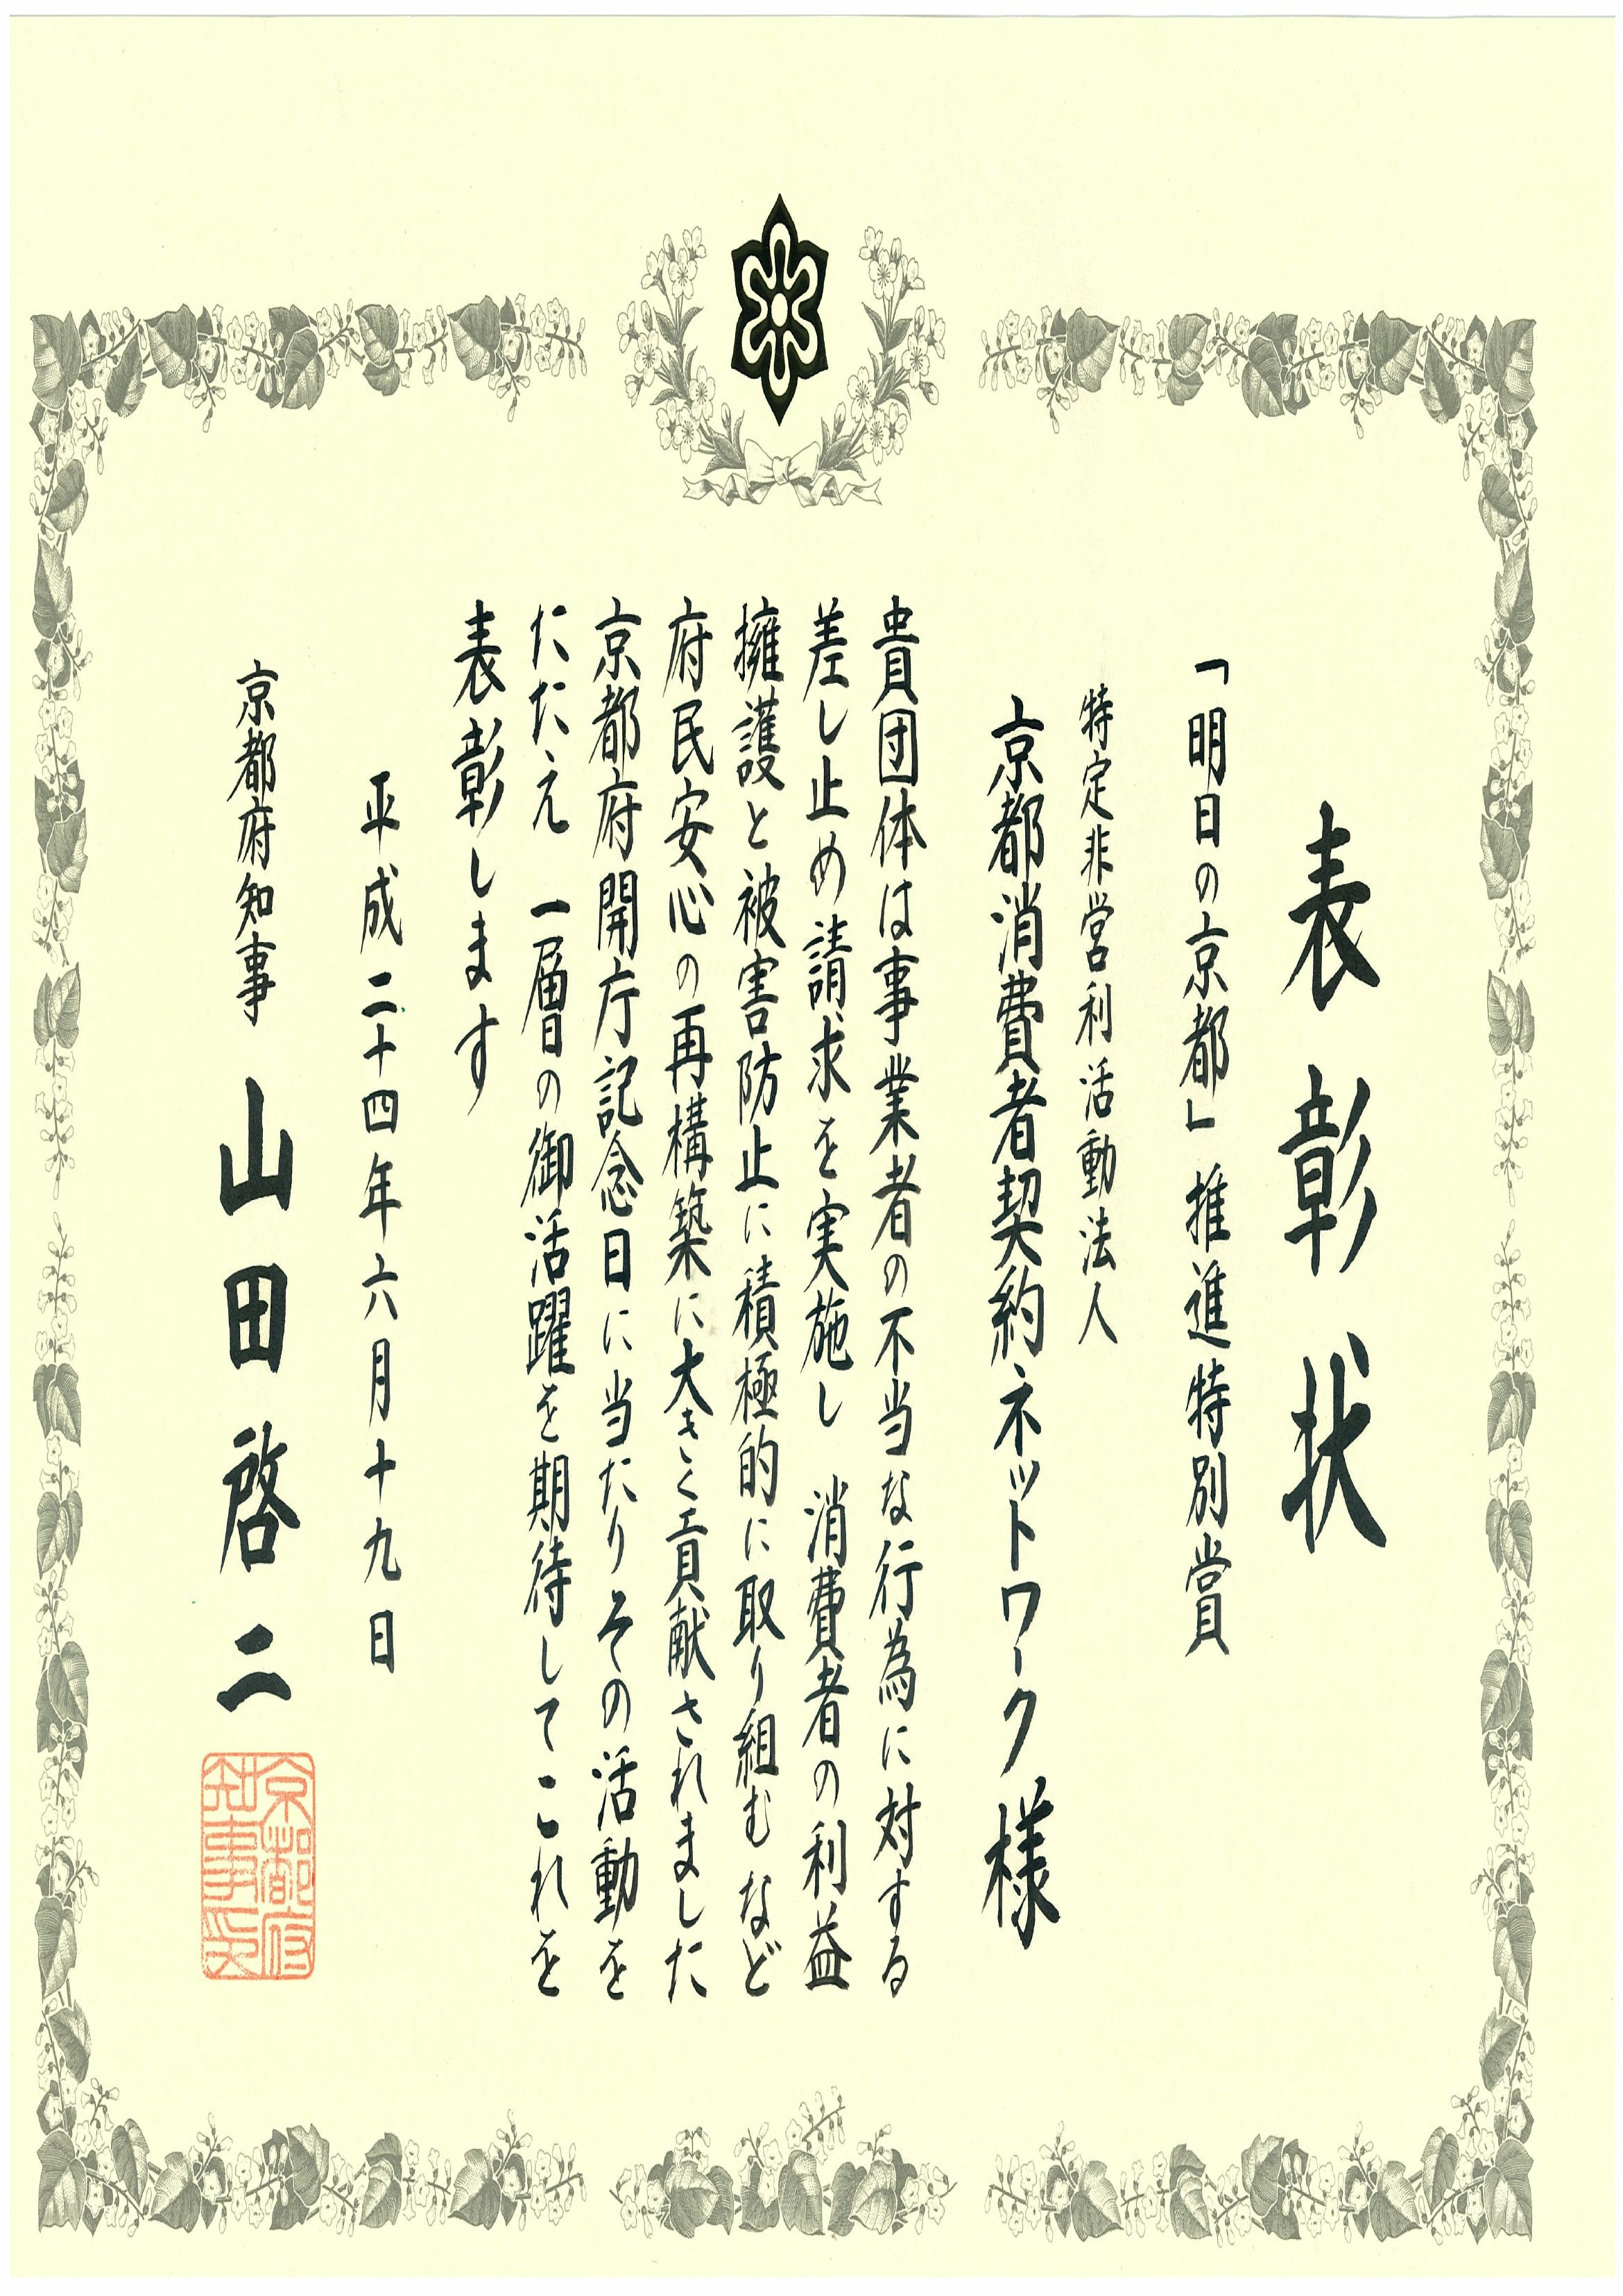 表彰状
「明日の京都」推進特別賞
特定非営利活動法人
京都消費者契約ネットワーク様
貴団体は事業者の不当な行為に対する
差し止め請求を実施し 消費者の利益
擁護と被害防止に積極的に取り組むなど
府民安心の再構築に大きく貢献されました
京都府開庁記念日に当たりその活動を
たたえ 一層の御活躍を期待してこれを
表彰します
平成二十四年六月十九日
京都府知事 山田啓二
京都府
知事印